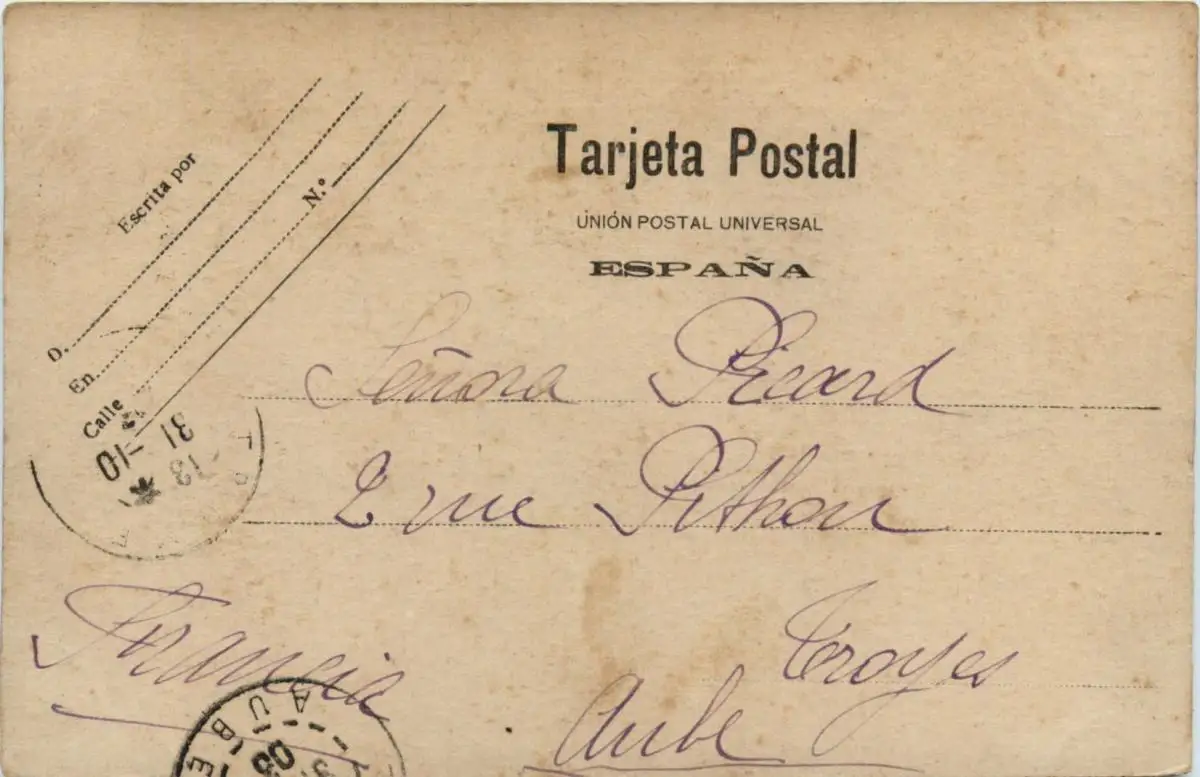 Tarjeta Postal
UNIÓN POSTAL UNIVERSAL
ESPAÑA
Escrita por
D.
En
Calle
N.º
Señora Picard
2 rue Pithou
Troyes
Francia
Aube
31 -10
13
AUBE